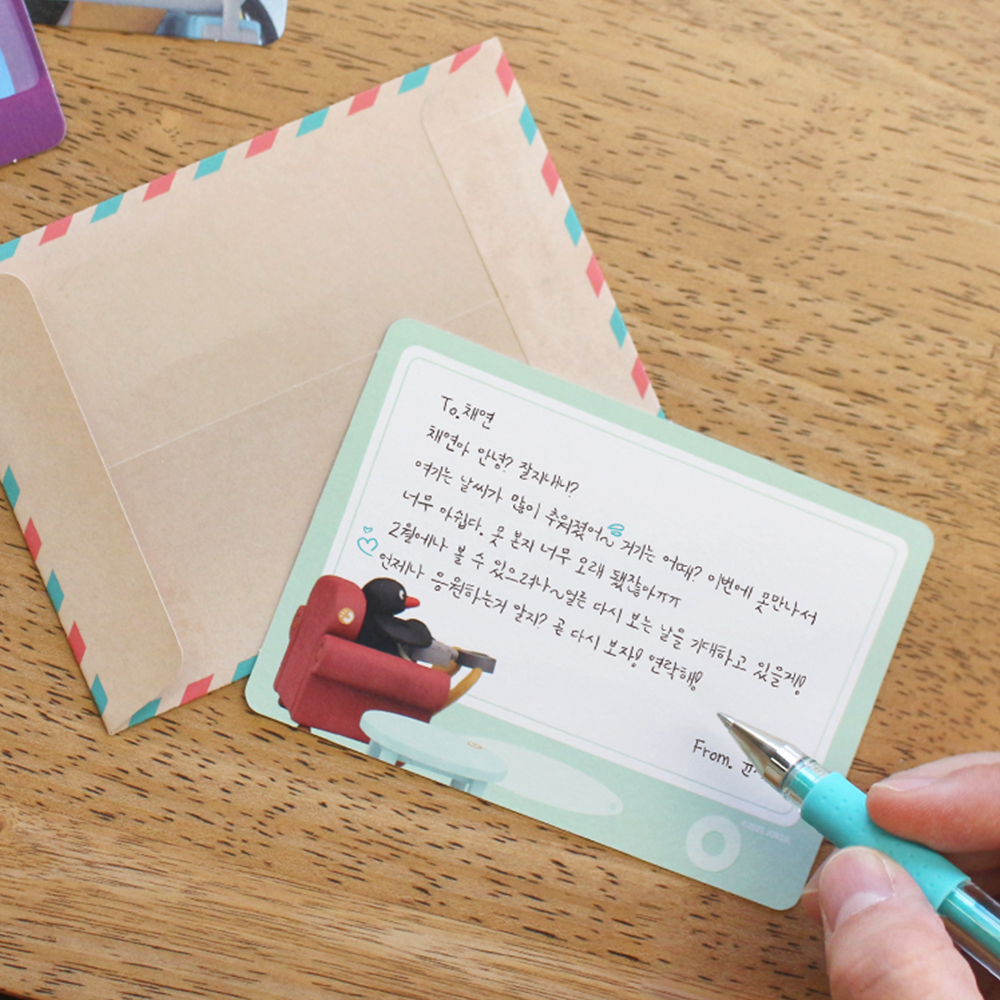 To.채연
채연아 안녕? 잘지내니?
여기는 날씨가 많이 추워졌어~ 거기는 어때? 이번에 못만나서
너무 아쉽다. 못 본지 너무 오래 됐잖아ㅠㅠ
2월에나 볼 수 있으려나~얼른 다시 보는 날을 기대하고 있을게!
언제나 응원하는거 알지? 곧 다시 보자! 연락해!
From.